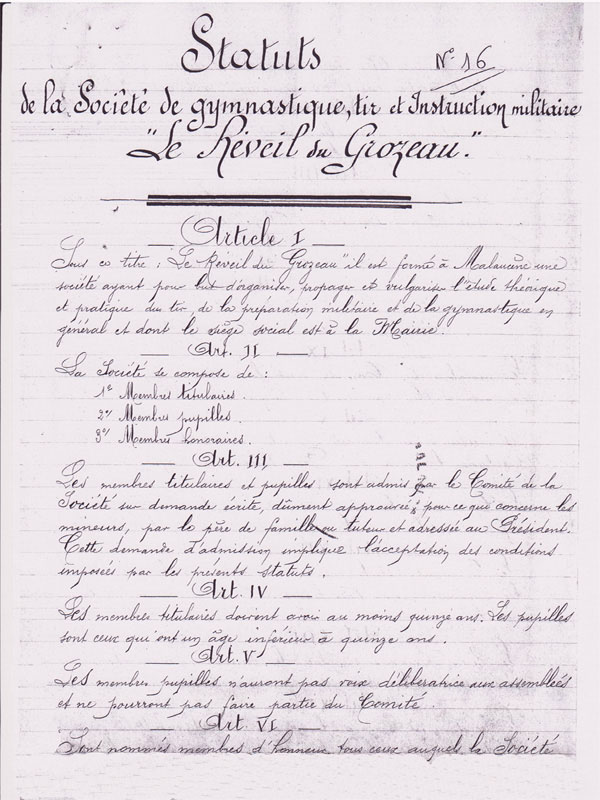 Statuts
N° 16
de la Société de gymnastique, tir et Instruction militaire
"Le Réveil du Grozeau."
Article I
Sous ce titre : "Le Réveil du Grozeau" il est formé à Malaucène une
société ayant pour but d'organiser, propager et vulgariser l'étude théorique
et pratique du tir, de la préparation militaire et de la gymnastique en
général et dont le siège social est à la Mairie.
Art. II
La Société se compose de :
1° Membres titulaires.
2° Membres pupilles.
3° Membres honoraires.
Art. III
Les membres titulaires et pupilles sont admis par le Comité de la
Société sur demande écrite, dûment approuvée, pour ce que concerne les
mineurs, par le père de famille ou tuteur et adressée au Président.
Cette demande d'admission implique l'acceptation des conditions
imposées par les présents statuts.
Art. IV
Les membres titulaires doivent avoir au moins quinze ans. Les pupilles
sont ceux qui ont un âge inférieur à quinze ans.
Art. V
Les membres pupilles n'auront pas voix délibératrice aux assemblées
et ne pourront pas faire partie du Comité.
Art. VI
Sont nommés membres d'honneur tous ceux auquels la Société